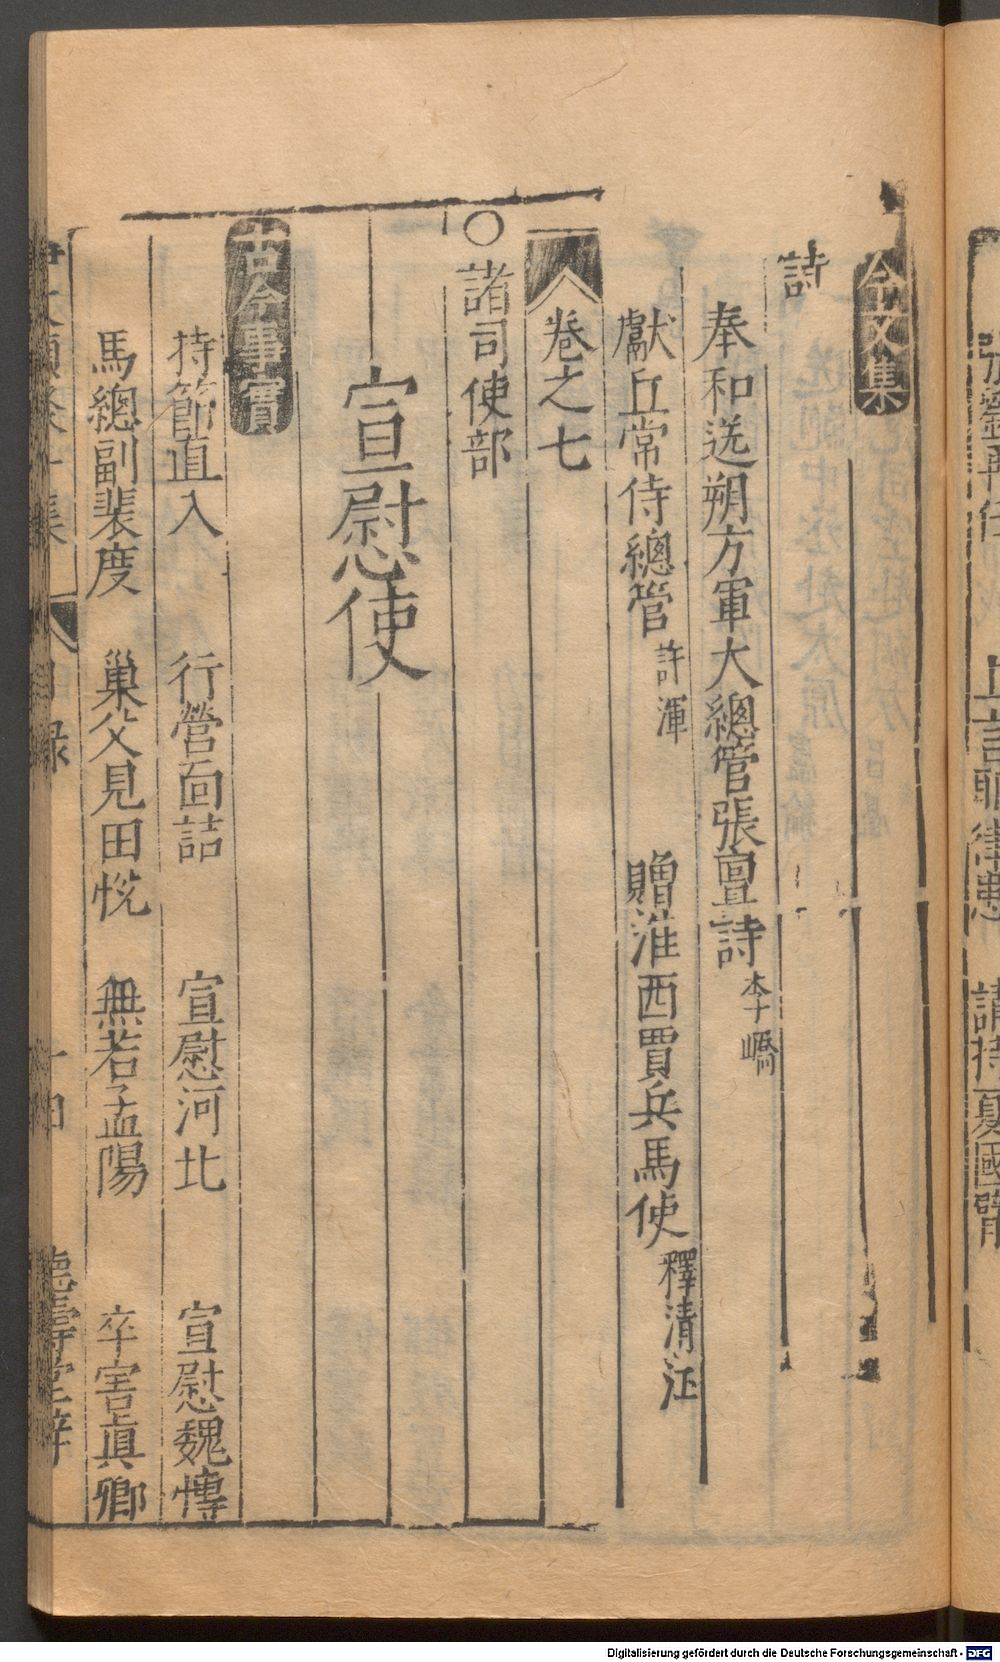 講持夏國
仝文集
詩
奉和送朔方軍大總管張亶詩 李嶠
獻丘常侍總管 許渾 贈淮西賈兵馬使 釋清江
卷之七
○諸司使部
宣慰使
古今事實
持節直入 行營面詰 宣慰河北 宣慰魏博
馬總副裴度 巢父見田悅 無若孟陽 卒害真卿
目錄 德壽堂梓
Digitalisierung gefördert durch die Deutsche Forschungsgemeinschaft - DFG